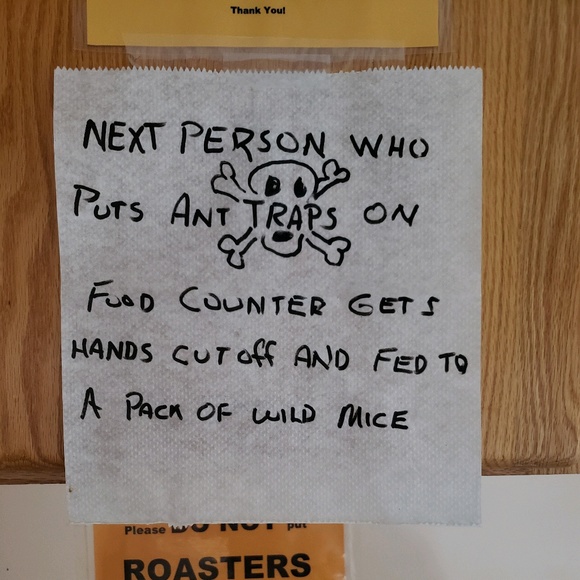 Thank You!
NEXT PERSON WHO
PUTS ANT TRAPS ON
FOOD COUNTER GETS
HANDS CUT OFF AND FED TO
A PACK OF WILD MICE
Please DO NOT put
ROASTERS